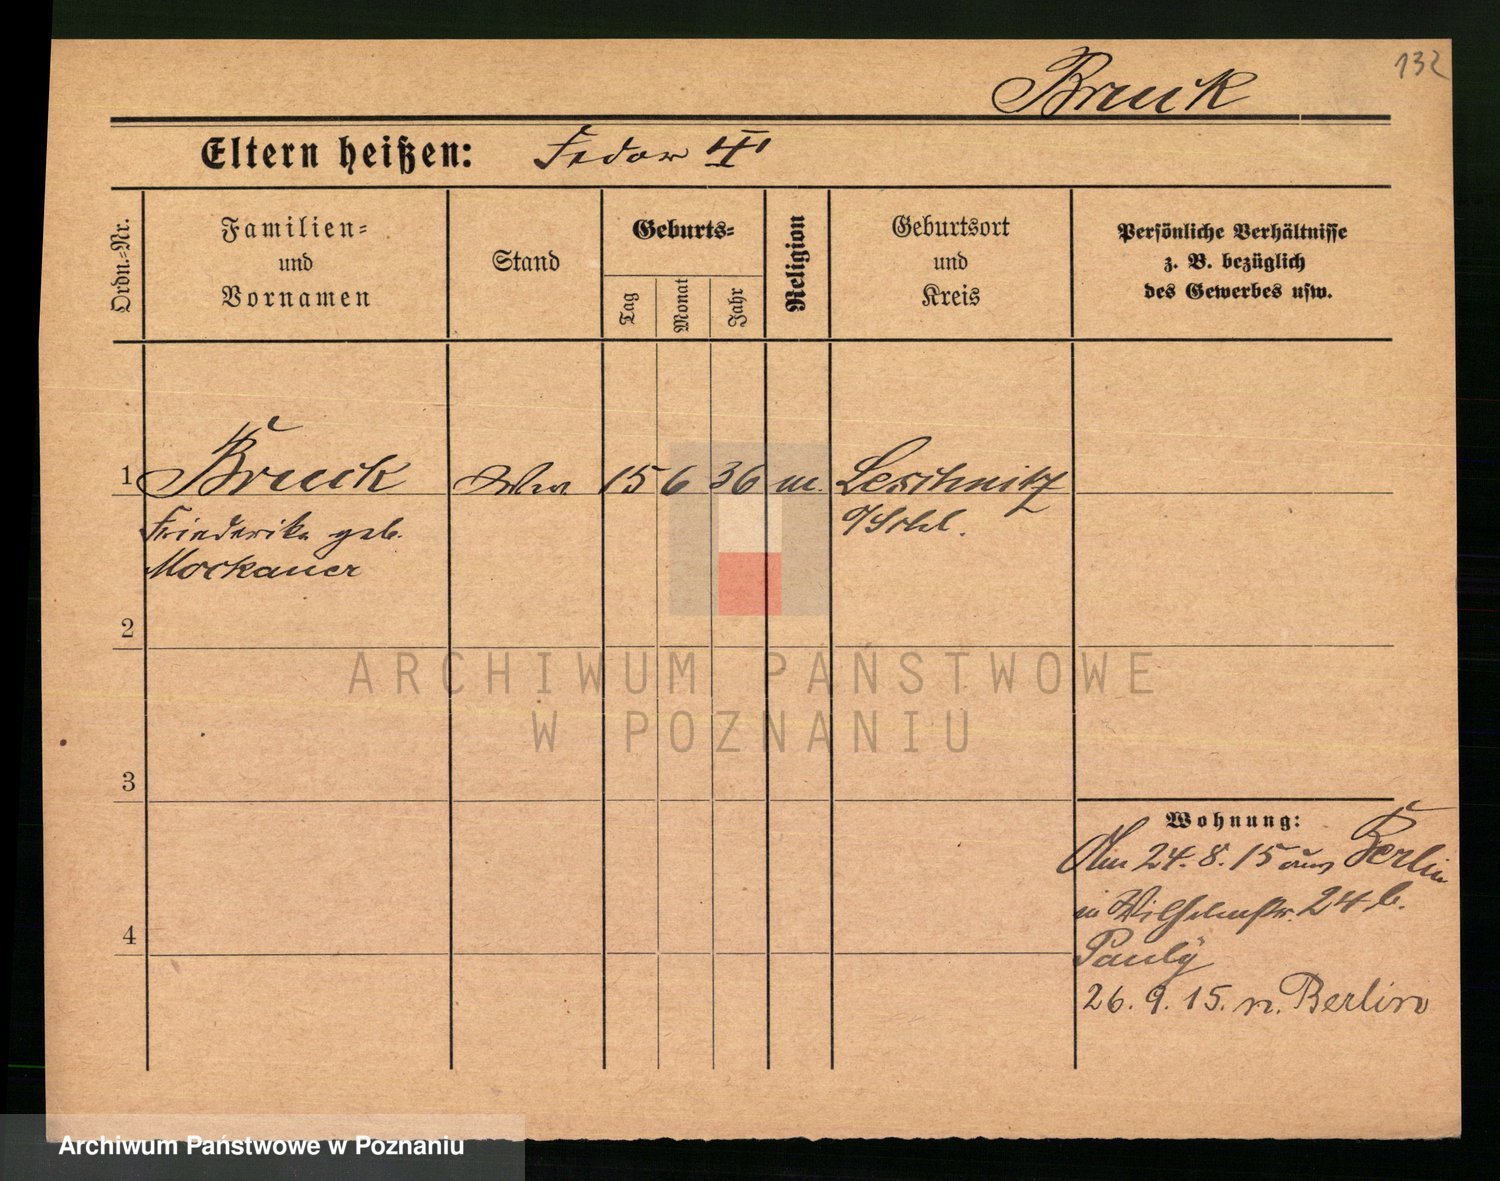 132
Bruck
Eltern heißen: Fedor II
Ordn.-Nr.
Familien-
und
Vornamen
Stand
Geburts-
Tag
Monat
Jahr
Religion
Geburtsort
und
Kreis
Persönliche Verhältnisse
z. B. bezüglich
des Gewerbes usw.
1 Bruck Wwe 15 6 36 m. Leschnitz
Friederike geb. O/Schl.
Mockauer
2
ARCHIWUM PAŃSTWOWE
W POZNANIU
3
Wohnung:
Am 24. 8. 15 aus Berlin
in Wilhelmstr. 24 b.
Pauly
4
26. 9. 15. n. Berlin
Archiwum Państwowe w Poznaniu